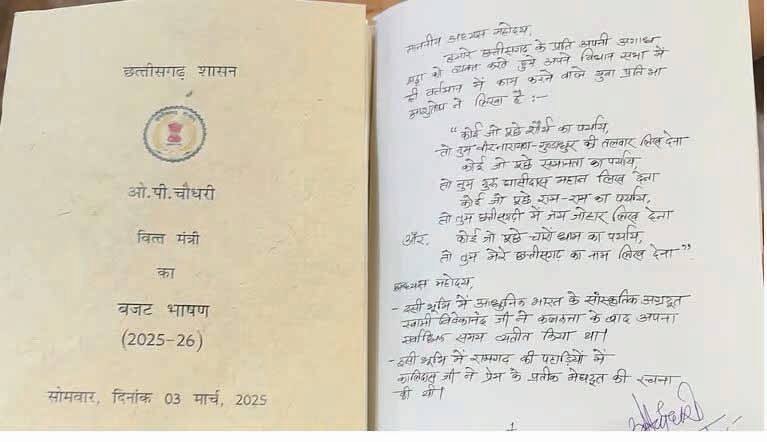 छत्तीसगढ़ शासन
ओ.पी.चौधरी
वित्त मंत्री
का
बजट भाषण
(2025-26)
सोमवार, दिनांक 03 मार्च, 2025
माननीय अध्यक्ष महोदय,
हमारे छत्तीसगढ़ के प्रति अपनी अगाध
को व्यक्त करते हुये अपने विधान सभा में
ही वर्तमान में काम करने वाले युवा प्रतिभा
ने लिखा है :-
"कोई जो पूछे शौर्य का पर्याय,
तो तुम वीरनारायण-गुण्डाधुर की तलवार लिख देना
कोई जो पूछे समानता का पर्याय,
तो तुम गुरु घासीदास महान लिख देना
कोई जो पूछे राम-राम का पर्याय,
तो तुम छत्तीसगढ़ी में जय जोहार लिख देना
और, कोई जो पूछे चारों धाम का पर्याय,
तो तुम मेरे छत्तीसगढ़ का नाम लिख देना"
अध्यक्ष महोदय,
- इसी भूमि में आधुनिक भारत के सांस्कृतिक अग्रदूत
स्वामी विवेकानंद जी ने कलकत्ता के बाद अपना
सर्वाधिक समय व्यतीत किया था।
- इसी भूमि में रामगढ़ की पहाड़ियों में
कालिदास जी ने प्रेम के प्रतीक मेघदूत की रचना
की थी।
1